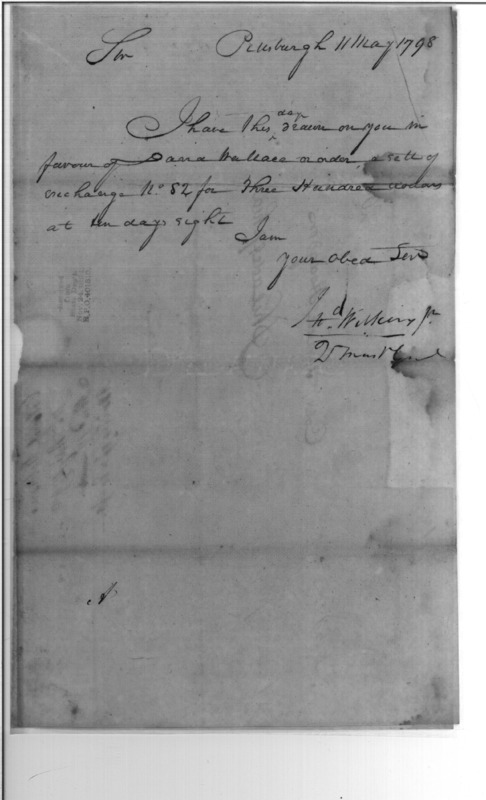 Sir Pittsburgh 11 May 1798
I have this day drawn on you in
favour of David Wallace or order, a sett of
exchange No 52 for Three Hundred dollars
at ten days sight
I am
your obed Serv
Jno Wilkins Jr